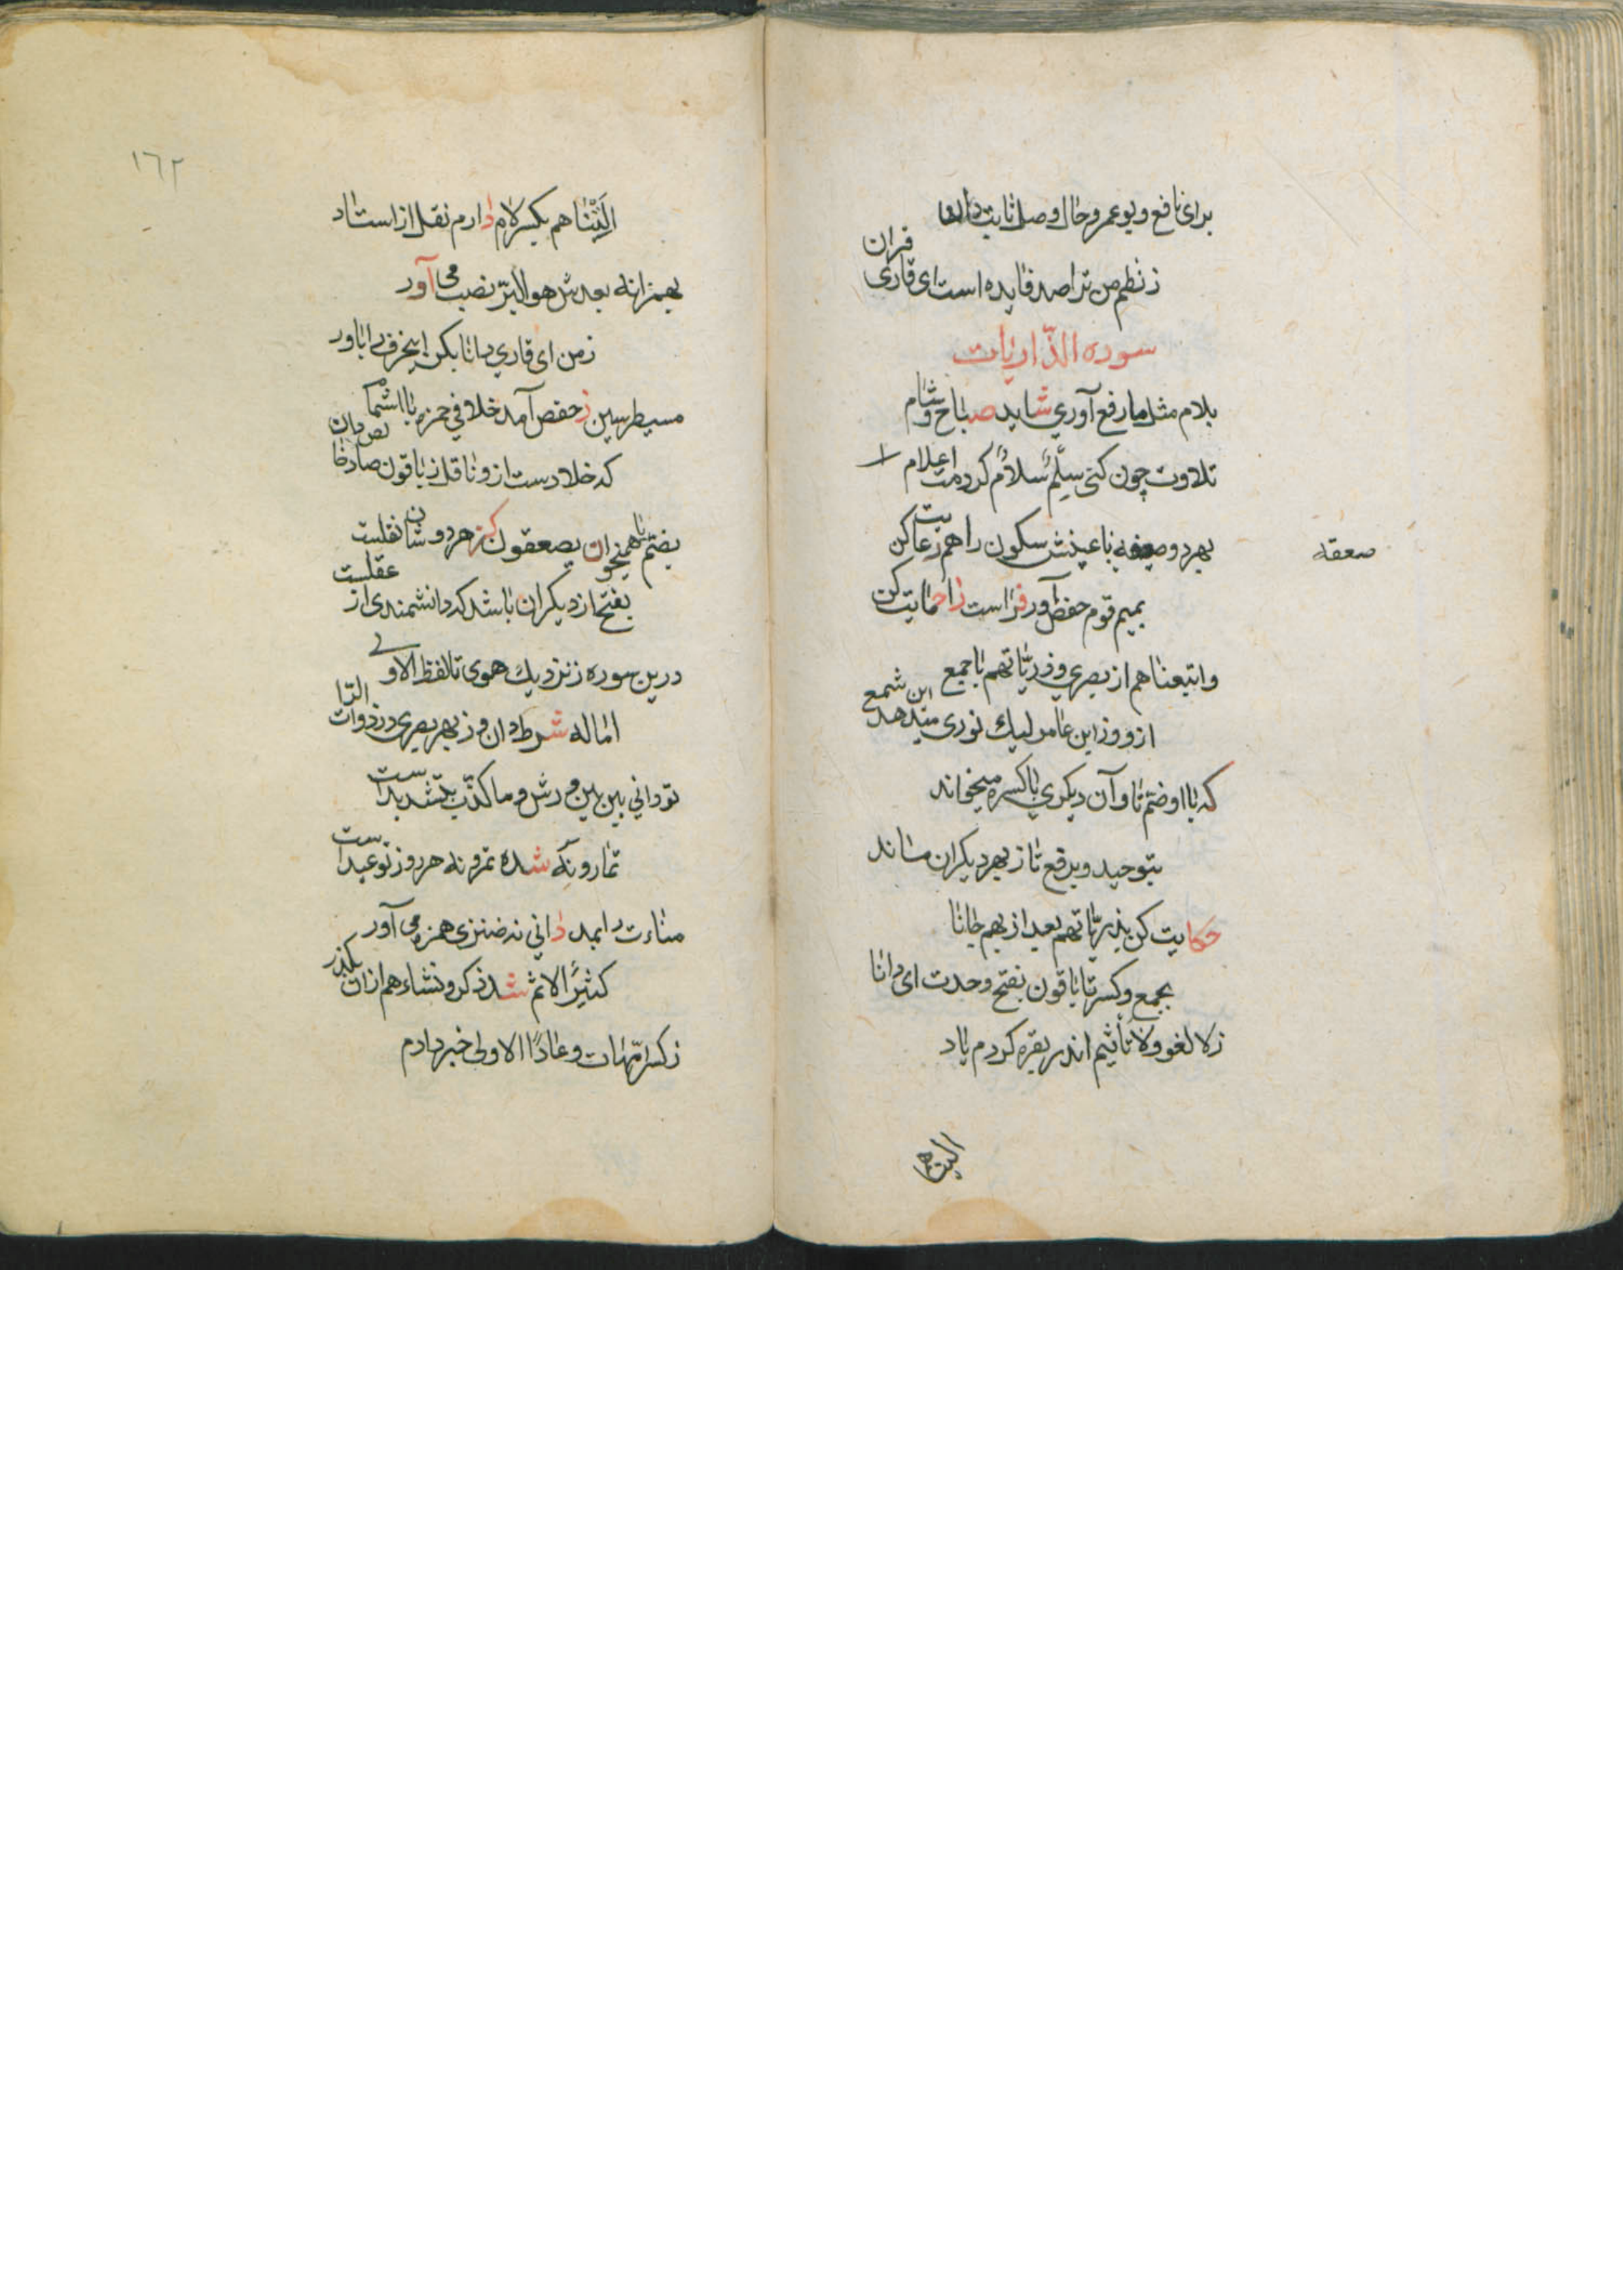 برای نافع و بو عمرو حال وصل ثابت دان
ز نظم من ترا صد فایده است ای قاری قران
سوره الذّاریات
بلام مثل ما رفع آوری شاید صباح و شام
تلاوت چون کنی سلّم سلام کردمت اعلام
بهر دو صعقه با عینش سکون را هم رعایت کن
صعقه
بمیم قوم حفض آور فراست زا حمایت کن
واتبعناهم از بصری و ذریّاتهم با جمع
ازو وز ابن عامر لیک نوری میدهد این شمع
که با او ضمّ تا و آن دیکری با کسره میخواند
بتوحید و برفع تا ز بهر دیکران ماند
حکایت کن بذریّاتهم بعد از بهم جانا
بجمع و کسر تا باقون بفتح وحدت ای دانا
ز لا لغو ولا تأثیم اندر بقره کردم یاد
التناهم
١٦٢
التناهم بکسر لام دارم نقل از استاد
بهمز انه بعدش هو البّر نصب می آور
ز من ای قاری دانا بکن اینحرف را باور
مسیطر سین ز حفص آمد خلافی حمزه با اشمام
که خلادست ازو ناقل ز باقون صاد خالص دان
بضمّ یا همیخوان یصعقون کز هر دوشان نقلست
بفتح از دیکران باشد که دانشمندی از عقلست
درین سوره ز نزدیک هوی تا لفظ الاولی
اماله شرط دان و ز بهر بصری در ذوات الرّا
تو دانی بین بین ورش و ما کذّب بتشدیدست
تمارونه شده تمرونه هر روز تو عیدست
مناءت را بمد دانی نه ضئزی همزه می آور
کثیر الاثم شد ذکر و نشاءه هم از ان بکذر
ز کسر امّهات و عادًا الاولی خبر دادم